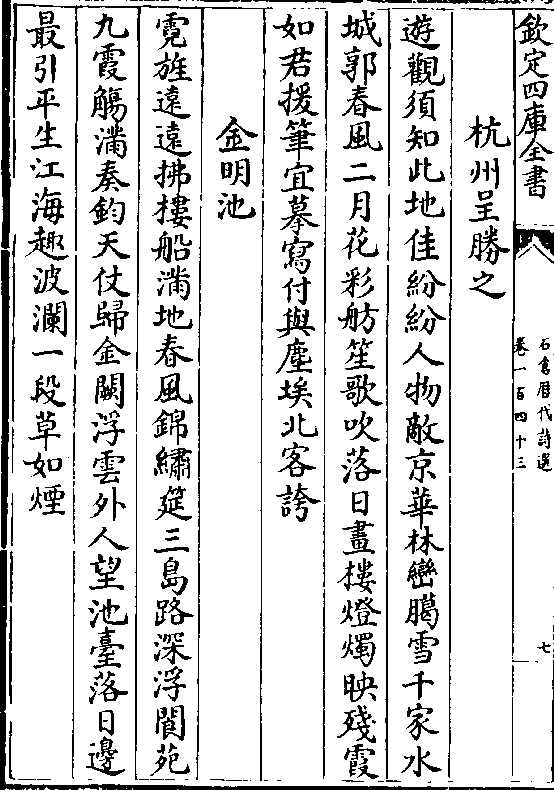 欽定四庫全書
石倉歴代詩選
卷一百四十三
七
杭州呈勝之
遊觀須知此地佳紛紛人物敵京華林巒臈雪千家水
城郭春風二月花彩舫笙歌吹落日畫樓燈燭映殘霞
如君援筆宜摹寫付與塵埃北客誇
金明池
霓旌遠遠拂樓船滿地春風錦繡筵三島路深浮閬苑
九霞觴滿奏鈞天仗歸金闕浮雲外人望池臺落日邊
最引平生江海趣波瀾一段草如煙